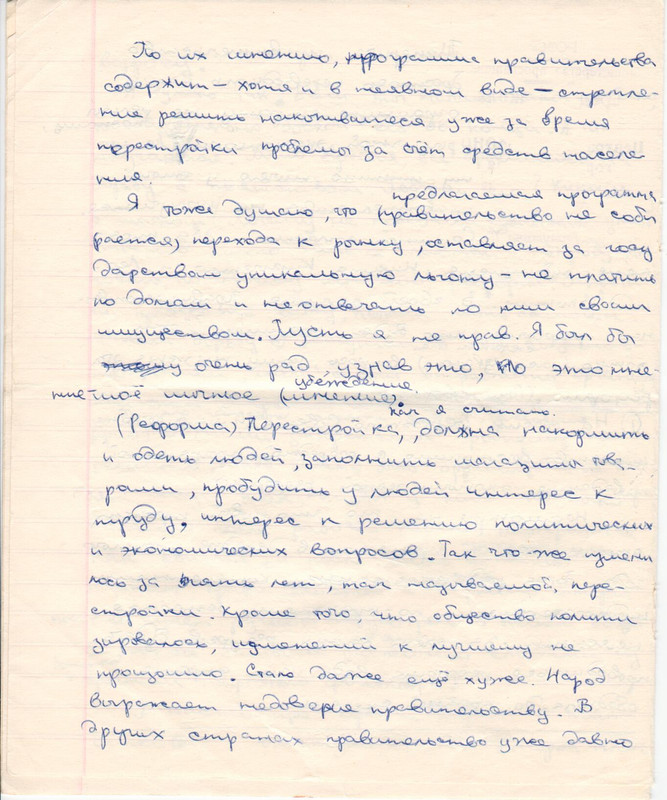 По их мнению, программа правительства
содержит – хотя и в неявном виде – стремле-
ние решить накопившиеся уже за время
перестройки проблемы за счёт средств населе-
ния.
предлагаемая программа
Я тоже думаю, что (правительство не соби
рается) перехода к рынку, оставляет за госу
дарством уникальную льготу – не платить
по долгам и не отвечать по ним своим
имуществом. Пусть я не прав. Я был бы
очень рад, узнав это, но это мне-
убеждение
ние моё личное (мнение).
как я считаю.
(Реформа) Перестройка, должна накормить
и одеть людей, заполнить магазины това-
рами, пробудить у людей интерес к
труду, интерес к решению политических
и экономических вопросов. Так что же измени
лось за пять лет, так называемой, пере-
стройки. Кроме того, что общество полити
зировалось, изменений к лучшему не
произошло. Стало даже ещё хуже. Народ
выражает недоверие правительству. В
других странах правительство уже давно